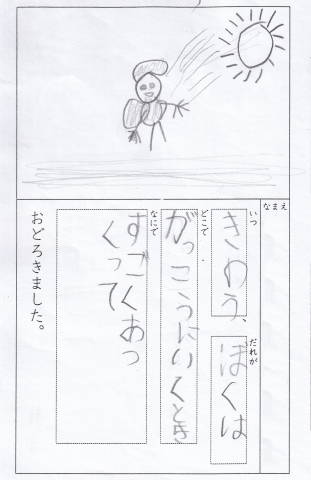 なまえ
いつ
きのう、
だれが
ぼくは
どこで
がっこうにいくとき
なにで
すごくあつ
くって
おどろきました。